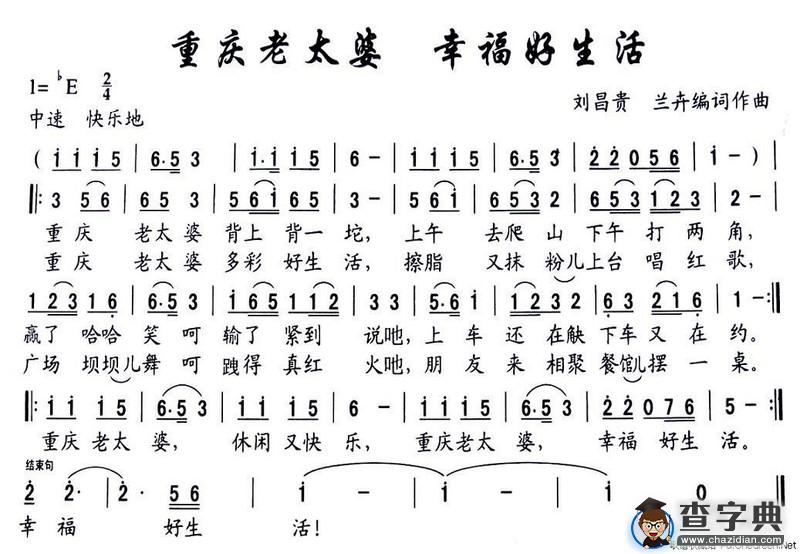 重庆老太婆 幸福好生活
1=♭E 2/4
刘昌贵 兰卉编词作曲
中速 快乐地
( i i i 5 | 6·5 3 | i·i i 5 | 6 - | i i i 5 | 6·5 3 | 2 2 0 5 6 | i - ) |
‖: 3 5 6 | i i 5 | 5 6 i 6 5 | 3 - | 5 6 i | 6 5 3 2 | 6 5 3 1 2 3 | 2 - |
重庆 老太婆 背上 背一 坨, 上午 去爬 山 下午 打 两 角,
重庆 老太婆 多彩 好生 活, 擦脂 又抹 粉儿上台 唱 红 歌,
1 2 3 1 6 | 5·5 3 | 5 1 6 5 1 1 2 | 3 3 | 3·5 6 1 | 1 2 3 2 | 2 1 2 6 | 1 - :‖
赢了 哈哈 笑 呵 输了 紧到 说吔, 上 车 还 在觖 下车 又 在 约。
广场 坝坝儿舞 呵 跩得 真红 火吔, 朋 友 来 相聚 餐馆儿摆 一 桌。
‖: i i i 5 | 6·5 3 | i i i 5 | 6 - | i i i 5 | 6·5 3 | 2 2 0 7 6 | i - :‖
重庆 老太 婆, 休闲 又快 乐, 重庆老太 婆, 幸福 好生 活。
结束句
2 2· | 2· 5 6 | i - | i - | i - | i 0 ‖
幸 福 好生 活!
查字典
www.chazidian.com